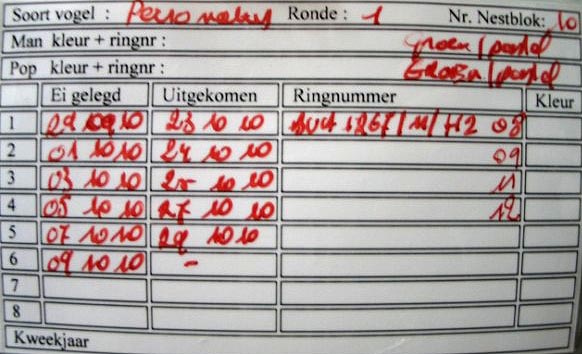 Soort vogel : Ronde : 1 Nr. Nestblok: 10
Man kleur + ringnr : groen /
Pop kleur + ringnr : Groen /
Ei gelegd Uitgekomen Ringnummer Kleur
1 29 09 10 23 10 10 08
2 01 10 10 24 10 10 09
3 03 10 10 25 10 10 11
4 05 10 10 27 10 10 12
5 07 10 10 28 10 10
6 09 10 10 -
7
8
Kweekjaar